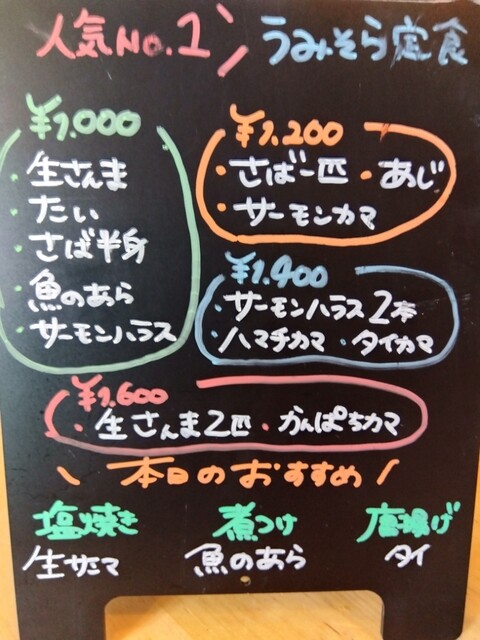 人気No.1 うみそら定食
¥1.000
・生さんま
・たい
・さば半身
・魚のあら
・サーモンハラス
¥1.200
・さば一匹 ・あじ
・サーモンカマ
¥1.400
・サーモンハラス2本
・ハマチカマ ・タイカマ
¥1.600
・生さんま2匹 ・かんぱちカマ
\ 本日のおすすめ /
塩焼き 煮つけ 唐揚げ
生サンマ 魚のあら タイ